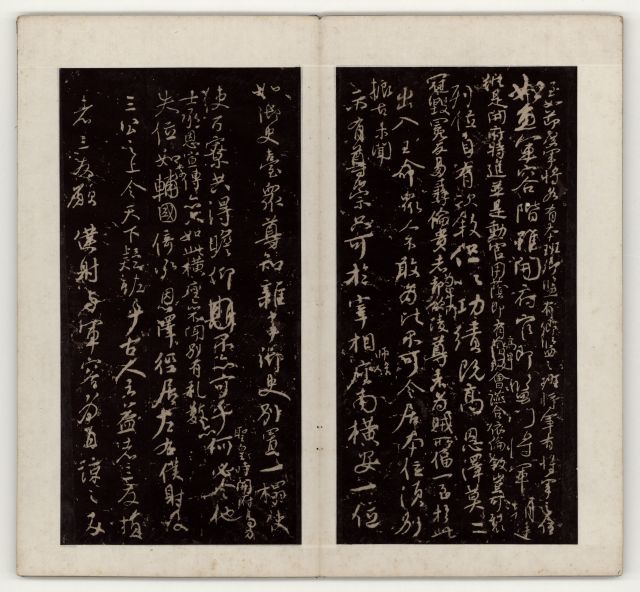 至如節度軍將各有本班卿監有卿監之班將軍有將軍之位
如魚軍容階雖開府官即監門將軍朝廷
縱是開府特進並是勳官用蔭即有高卑會讌合依倫敘豈可裂
列位自有次敘但以功績既高恩澤莫二
冠毀冕反易彝倫貴者為卑所凌尊者為賊所偪一至於此
出入王命眾人不敢為比不可令居本位須別
振古未聞
示有尊崇只可於宰相師保座南橫安一位
如御史臺眾尊知雜事御史別置一榻使
使百寮共得瞻仰不亦可乎聖皇時開府高力
士承恩宣傳亦只如此橫座亦不聞別有禮數亦何必令他
失位如輔國倚承恩澤徑居左右僕射及
三公之上令天下疑怪乎古人云益者三友損
者三友願僕射與軍容為直諒之友